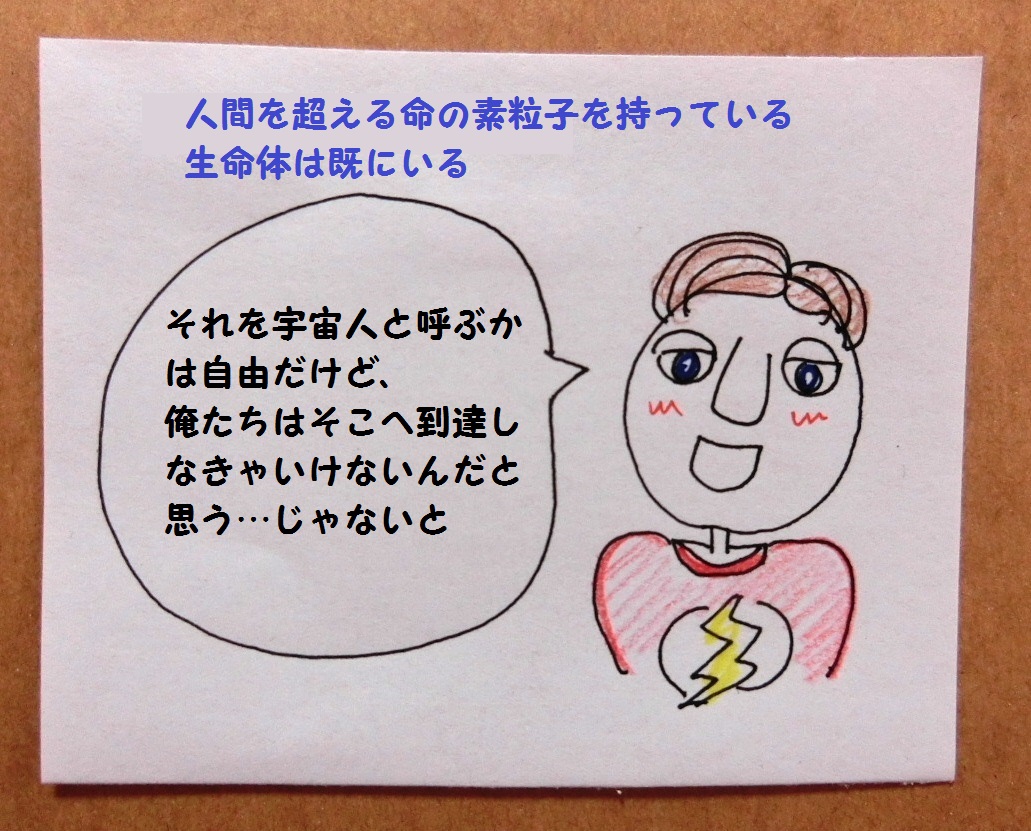 人間を超える命の素粒子を持っている
生命体は既にいる
それを宇宙人と呼ぶか
は自由だけど、
俺たちはそこへ到達し
なきゃいけないんだと
思う…じゃないと